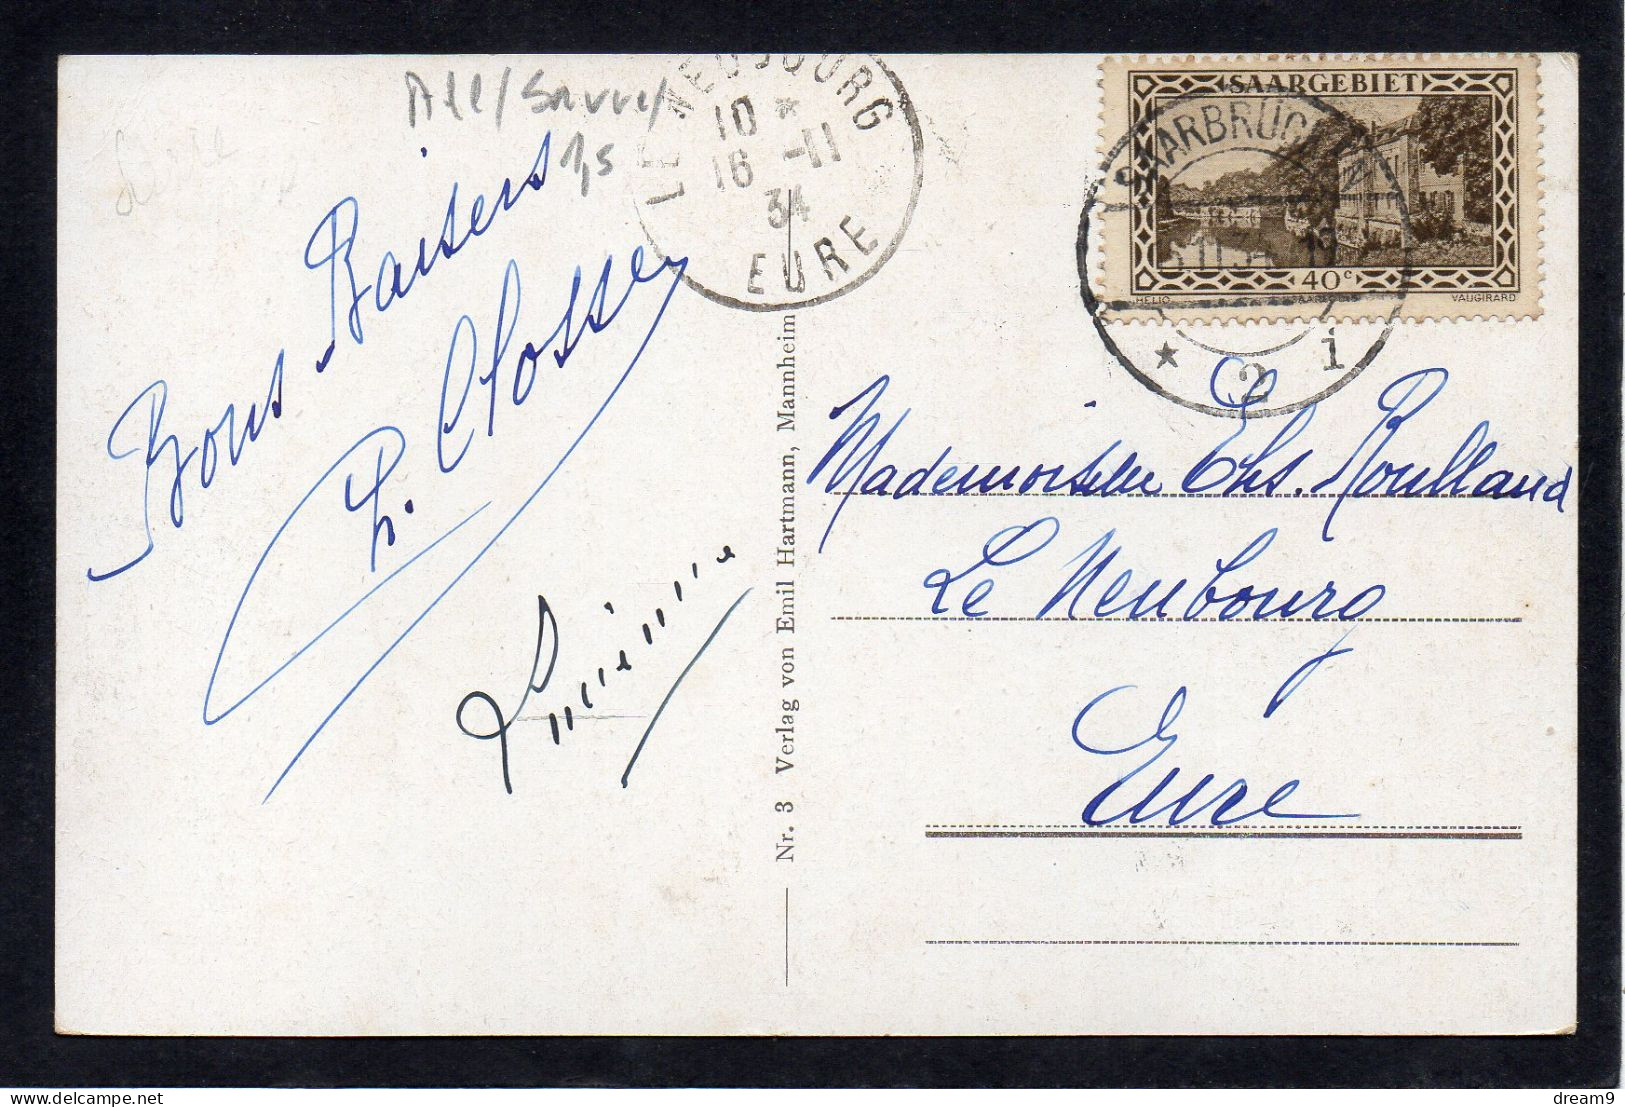 All/Sarre/
1,5
LE NEUBOURG
10 *
16 -11
34
EURE
SAARGEBIET
40c
HELIO
SAARLOUIS
VAUGIRARD
SAARBRÜCKEN
* 2 i
Bons Baisers
Nr. 3 Verlag von Emil Hartmann, Mannheim
Mademoiselle Chs. Roulland
Le Neubourg
Eure
delcampe.net
dream9